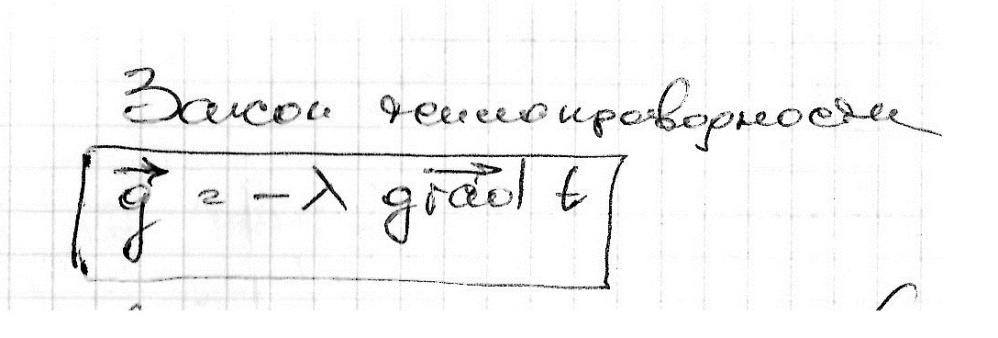 Закон теплопроводности
q⃗ = -λ grad⃗ t